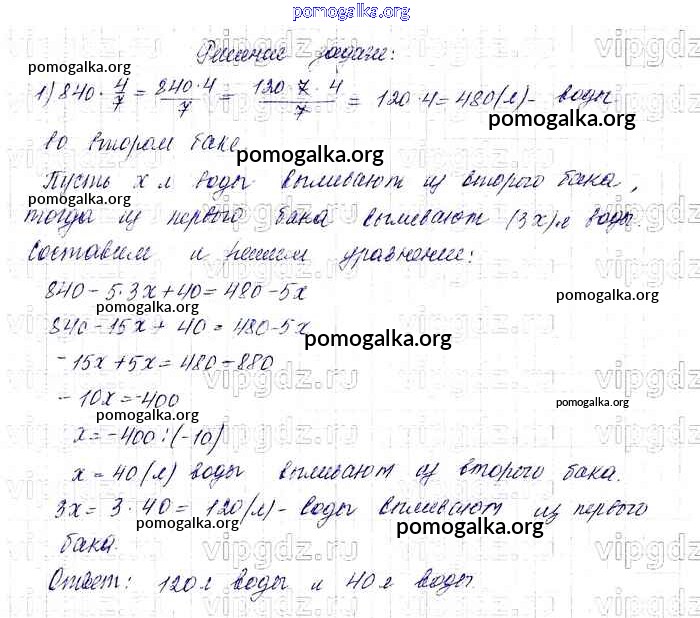 pomogalka.org
Решение задачи:
pomogalka.org
1) 840 · 4/7 = 840·4/7 = 120·7·4/7 = 120·4=480(л)- воды
pomogalka.org
во втором баке
pomogalka.org
Пусть x л воды выливают из второго бака,
тогда из первого бака выливают (3x)л воды.
Составим и решим уравнение:
840-5·3x+40=480-5x
pomogalka.org pomogalka.org
840-15x+40=480-5x
pomogalka.org
-15x+5x=480-880
-10x=-400
pomogalka.org pomogalka.org
x=-400:(-10)
x=40(л) воды выливают из второго бака.
3x=3·40=120(л)-воды выливают из первого
pomogalka.org pomogalka.org
бака.
Ответ: 120л воды и 40л воды
vipgdz.ru